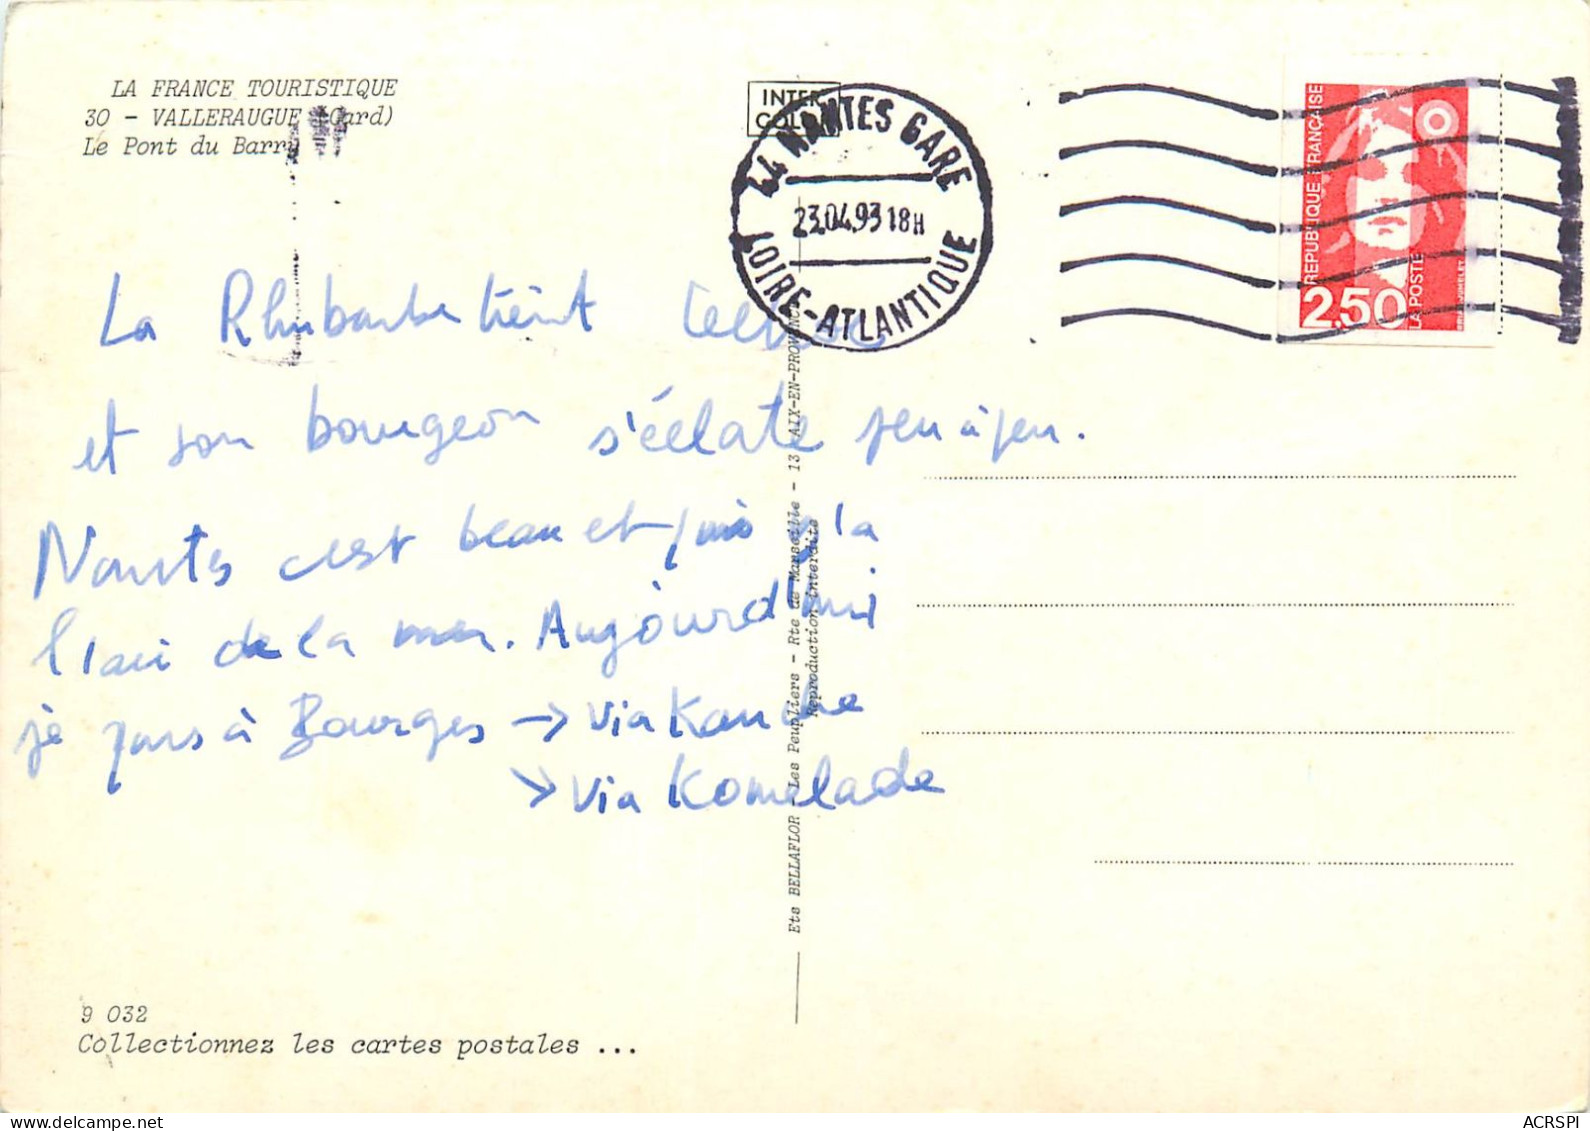 LA FRANCE TOURISTIQUE
30 - VALLERAUGUE (Gard)
Le Pont du Barry
INTER
COLOR
44 NANTES GARE
23.04.93 18H
LOIRE-ATLANTIQUE
REPUBLIQUE FRANÇAISE
2,50
LA POSTE
La Rhubarbe tient
et son bourgeon s'éclate peu à peu.
Nantes c'est beau et puis y'a
l'air de la mer. Aujourd'hui
je pars à Bourges → via Kanche
> via Komelade
Ets BELLAFLOR - Les Peupliers - Rte de Marseille - 13 AIX-EN-PROVENCE
Reproduction interdite
9 032
Collectionnez les cartes postales ...
ACRSPI